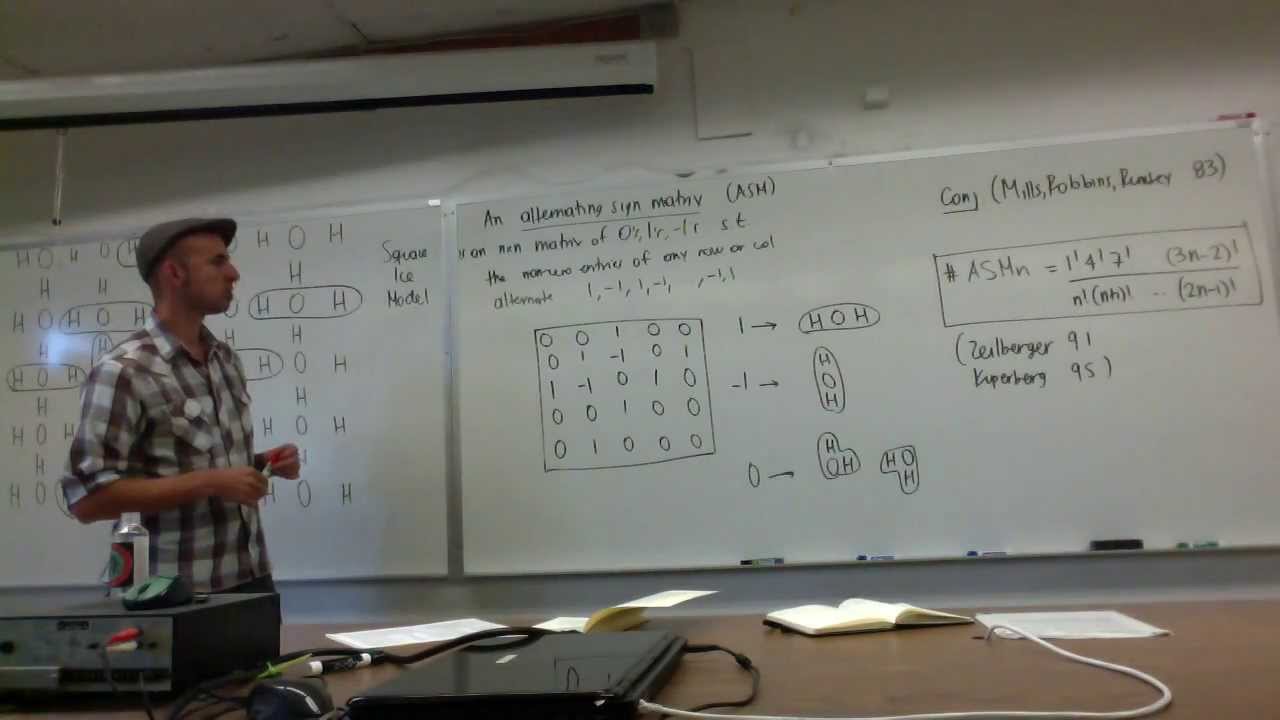 H O H O H
H O H
H H
H
O H O H
H O H
H
H O H
H O H
H
H O H
H O H
H
H O H
H
H O
H O H
Square
Ice
Model
An alternating sign matrix (ASM)
is an nxn matrix of 0's, 1's, -1's s.t.
the non-zero entries of any row or col
alternate 1, -1, 1, -1, , -1, 1
0 0 1 0 0
0 1 -1 0 1
1 -1 0 1 0
0 0 1 0 0
0 1 0 0 0
1 → H O H
-1 → H
O
H
0 → H
O H
H O
H
Conj (Mills, Robbins, Rumsey 83)
# ASMn = 1! 4! 7! (3n-2)!
n! (n+1)! .. (2n-1)!
(Zeilberger 91
Kuperberg 95)